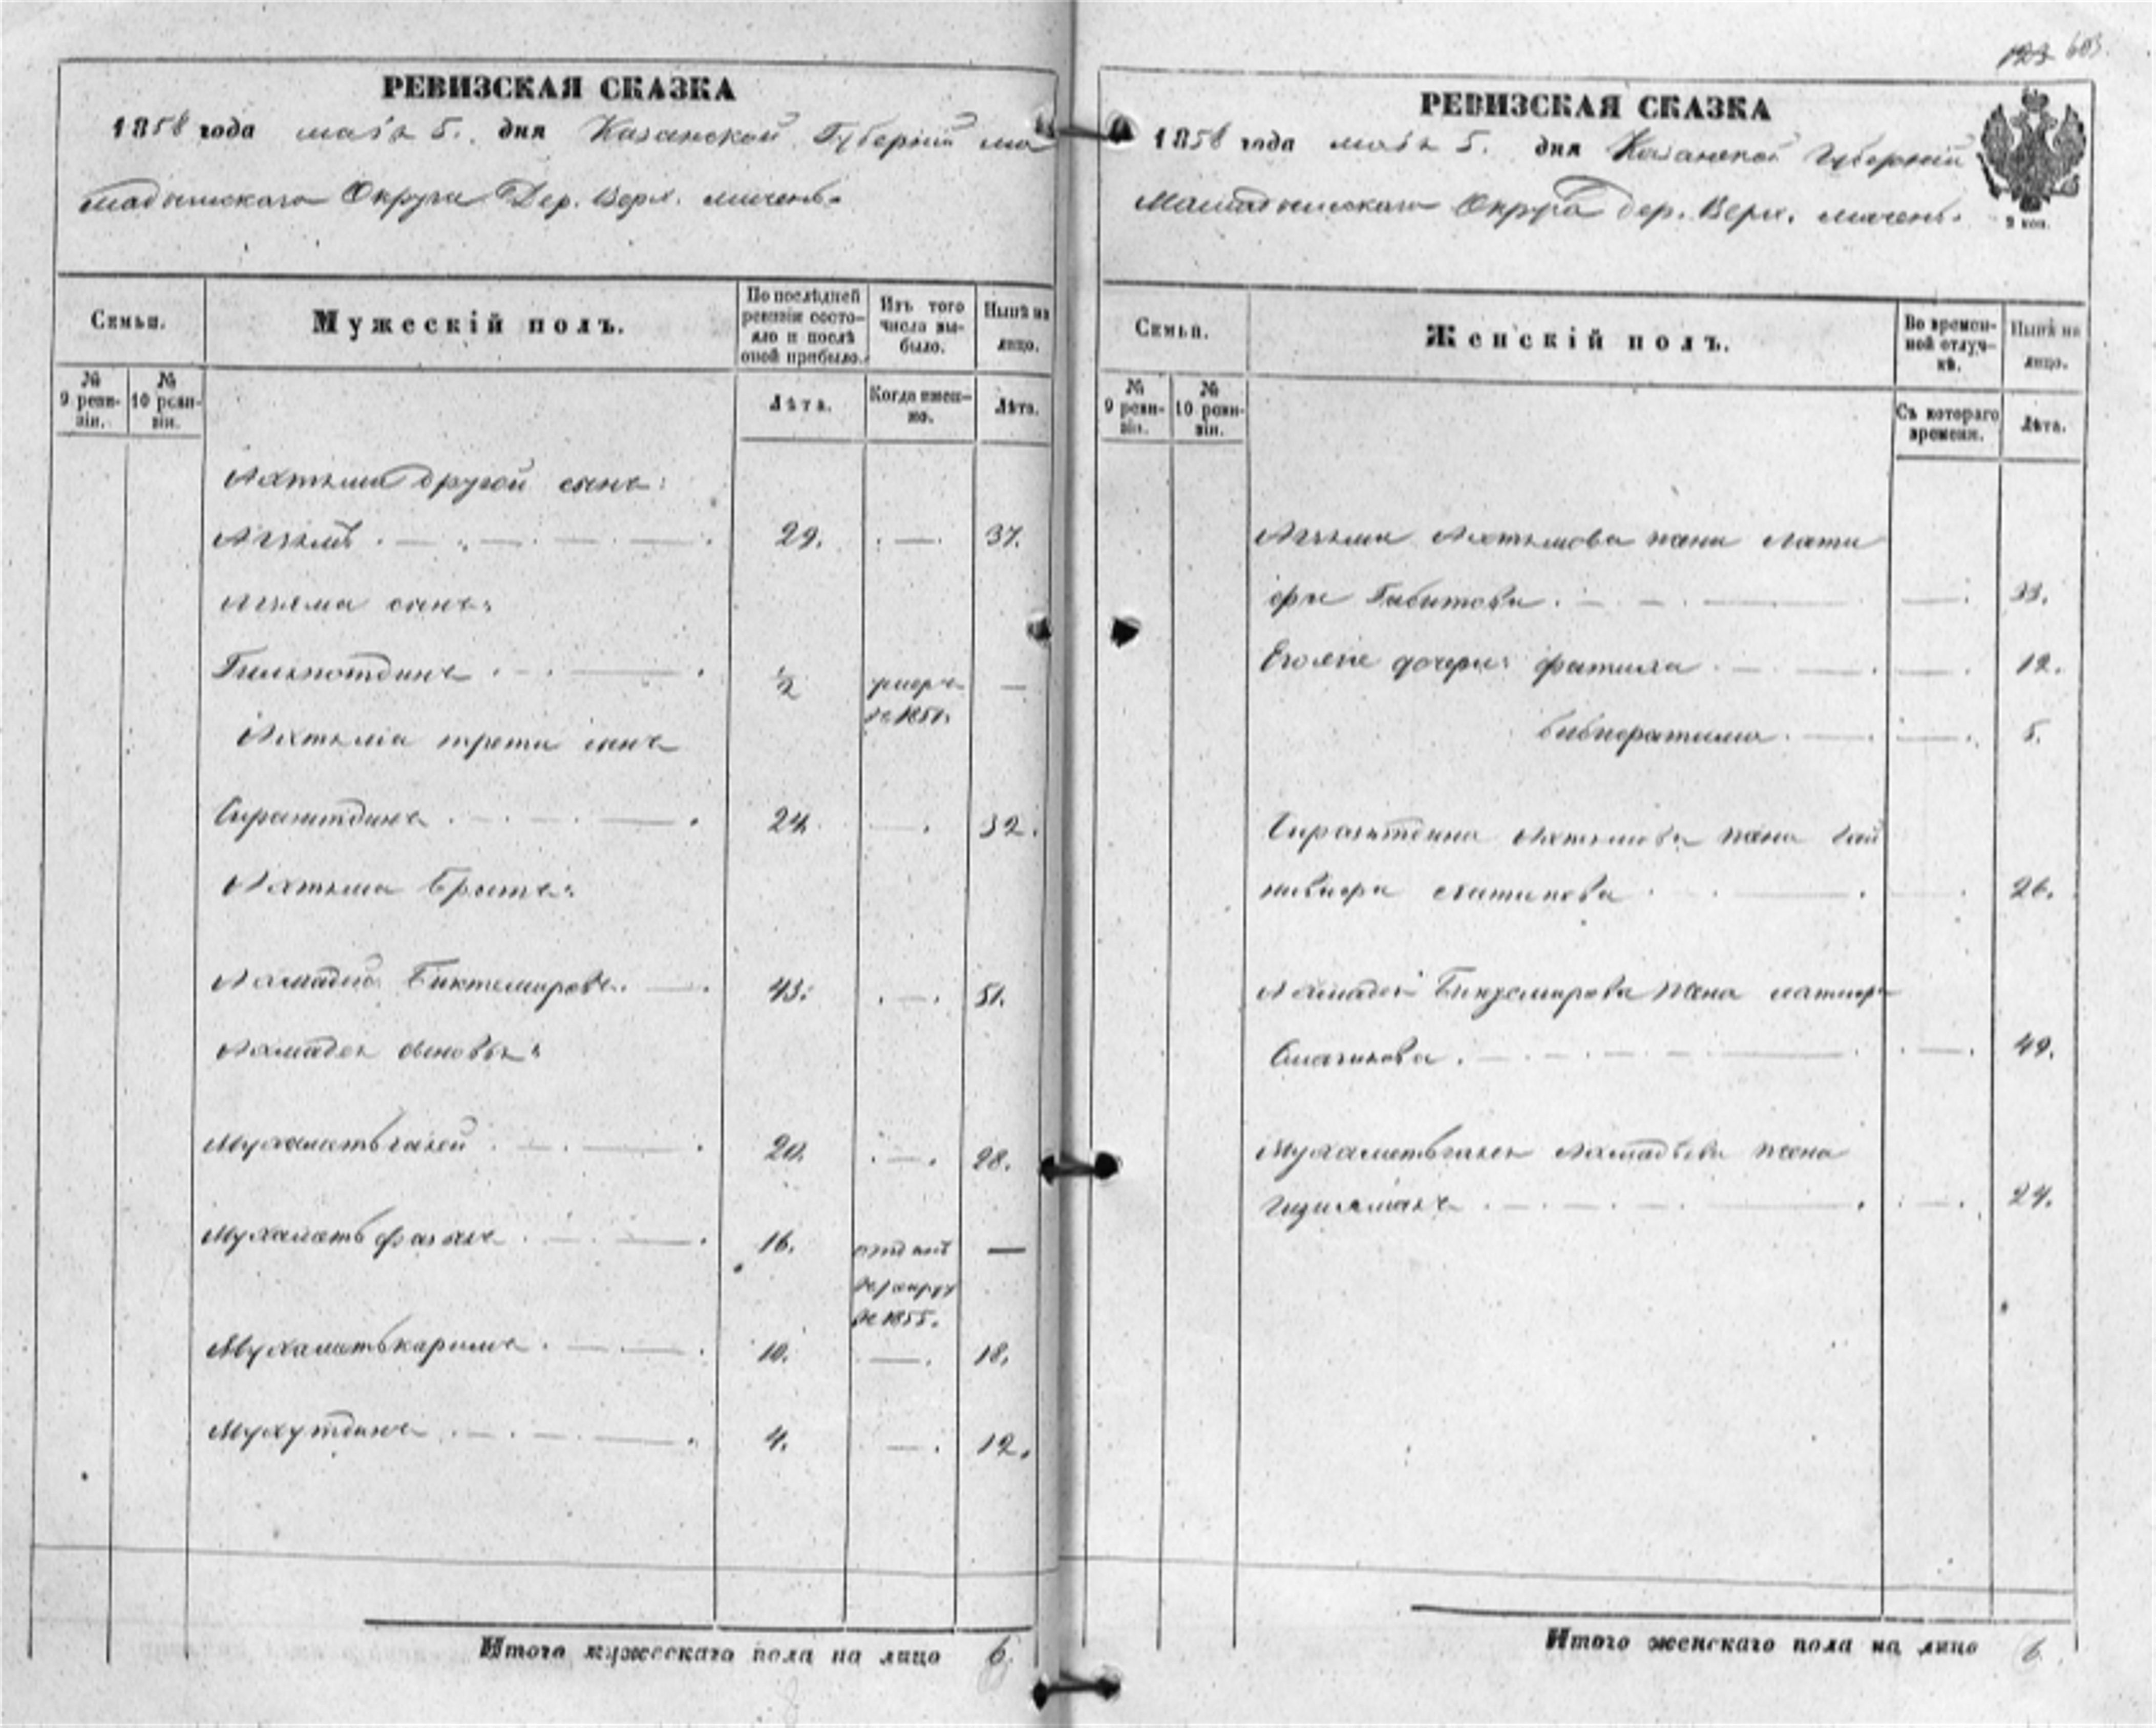 603.
РЕВИЗСКАЯ СКАЗКА
1858 года мая 5. дня Казанской Губернии Ма
мадышскаго Округа Дер. Верх.
Семьи.
Мужескій полъ.
По послѣдней ревизіи состояло и послѣ оной прибыло.
Изъ того числа выбыло.
Нынѣ на лицо.
№ 9 ревизіи.
№ 10 ревизіи.
Лѣта.
Когда именно.
Лѣта.
Ахтяма другой сынъ:
Агзямъ 29. 37.
Агзяма сынъ:
1/2 умеръ
въ 1851.
Ахтяма трети сынъ
24. 32.
Ахтяма братъ:
Ахмадій Биктемировъ 43. 51.
Ахмадея сыновья:
Мухаметьгалей 20. 28.
Мухаметь 16. отданъ
въ рекруты
въ 1855.
Мухаметькаримъ 10. 18.
Мухутдинъ 4. 12.
Итого мужескаго пола на лицо 6.
РЕВИЗСКАЯ СКАЗКА
1858 года мая 5. дня Казанской Губерніи
Мамадышскаго Округа дер. Верх.
2 коп.
Семьи.
Женскій полъ.
Во временной отлучкѣ.
Нынѣ на лицо.
№ 9 ревизіи.
№ 10 ревизіи.
Съ котораго времени.
Лѣта.
Агзяма Ахтямова жена Лати
фа Габитова 33.
Его же дочери: Фатима 12.
5.
Ахтямова жена
26.
Ахмадея Биктемирова жена
Смагилова 49.
Мухаметьгалея жена
24.
Итого женскаго пола на лицо 6